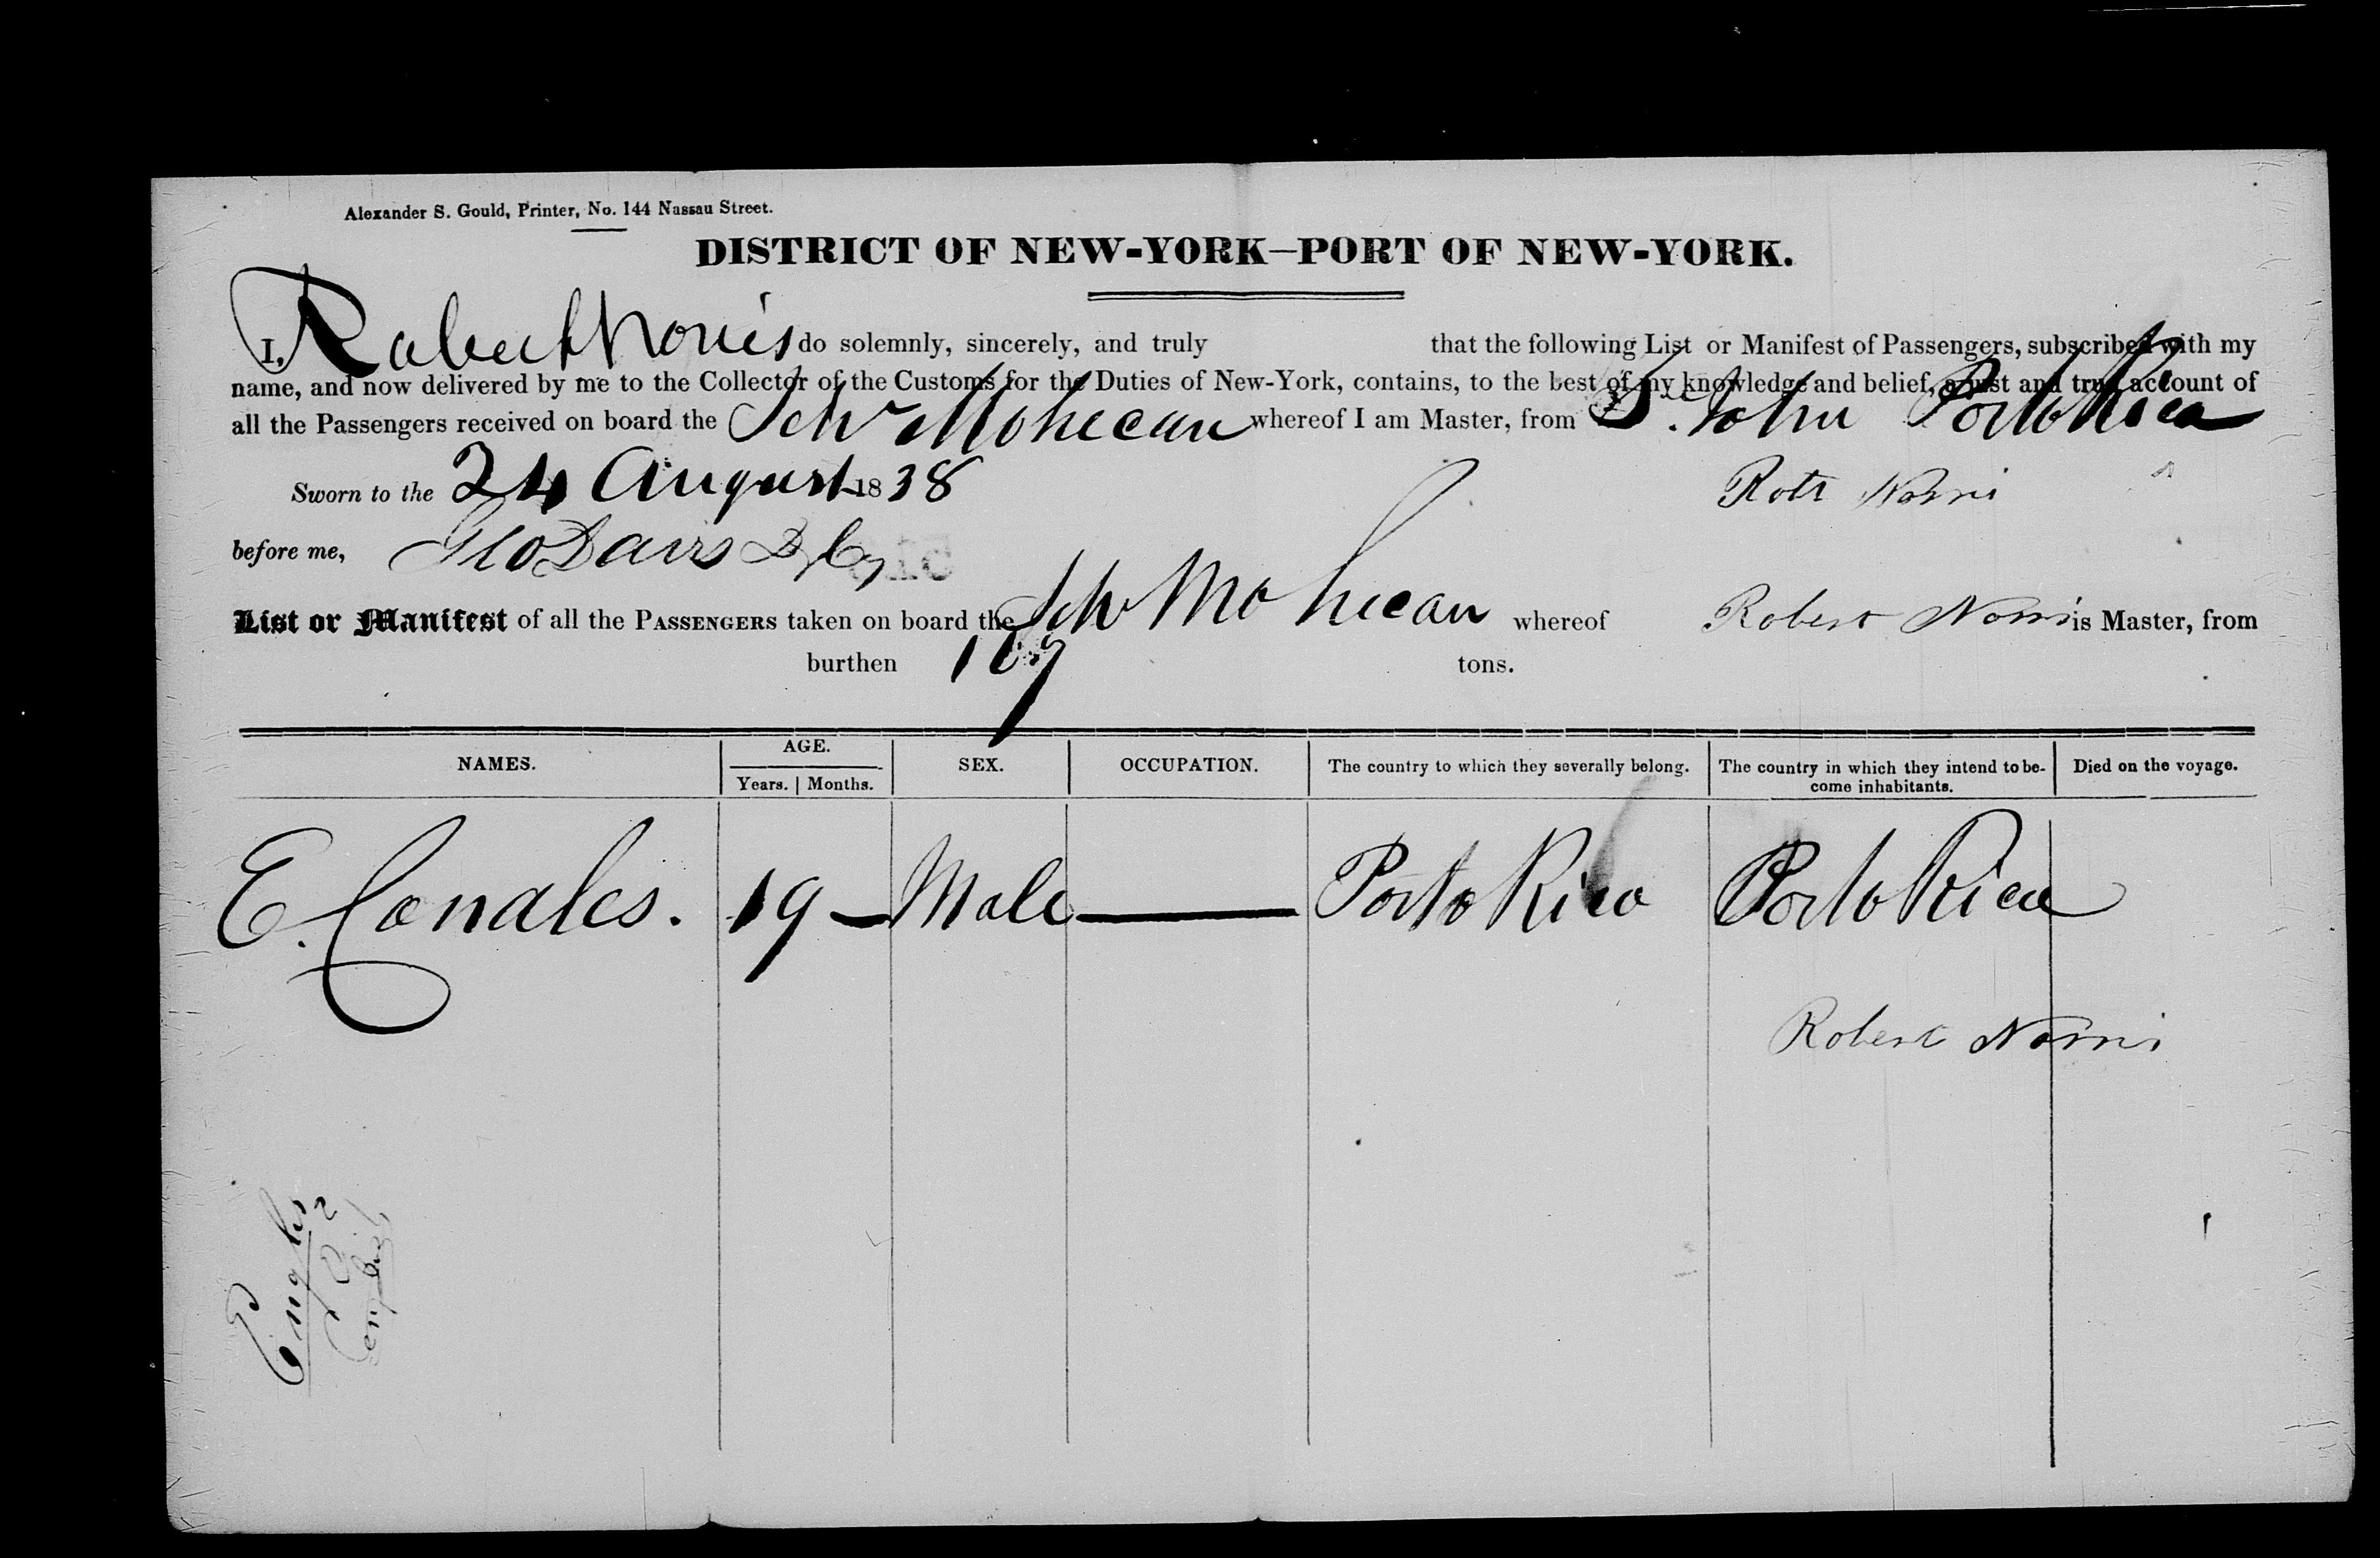 Alexander S. Gould, Printer, No. 144 Nassau Street.
DISTRICT OF NEW-YORK—PORT OF NEW-YORK.
I, Robert Norris do solemnly, sincerely, and truly that the following List or Manifest of Passengers, subscribed with my
name, and now delivered by me to the Collector of the Customs for the Duties of New-York, contains, to the best of my knowledge and belief, a just and true account of
all the Passengers received on board the Schr Mohecan whereof I am Master, from St. John Porto Rico
Sworn to the 24 August 1838
Robt Norris
before me, Geo Davis
List or Manifest of all the PASSENGERS taken on board the Schr Mohecan whereof Robert Norris is Master, from
burthen 109 tons.
NAMES. AGE. SEX. OCCUPATION. The country to which they severally belong. The country in which they intend to be- Died on the voyage.
Years. Months. come inhabitants.
E. Conales. 19 — Male — Porto Rico Porto Rico
Robert Norris